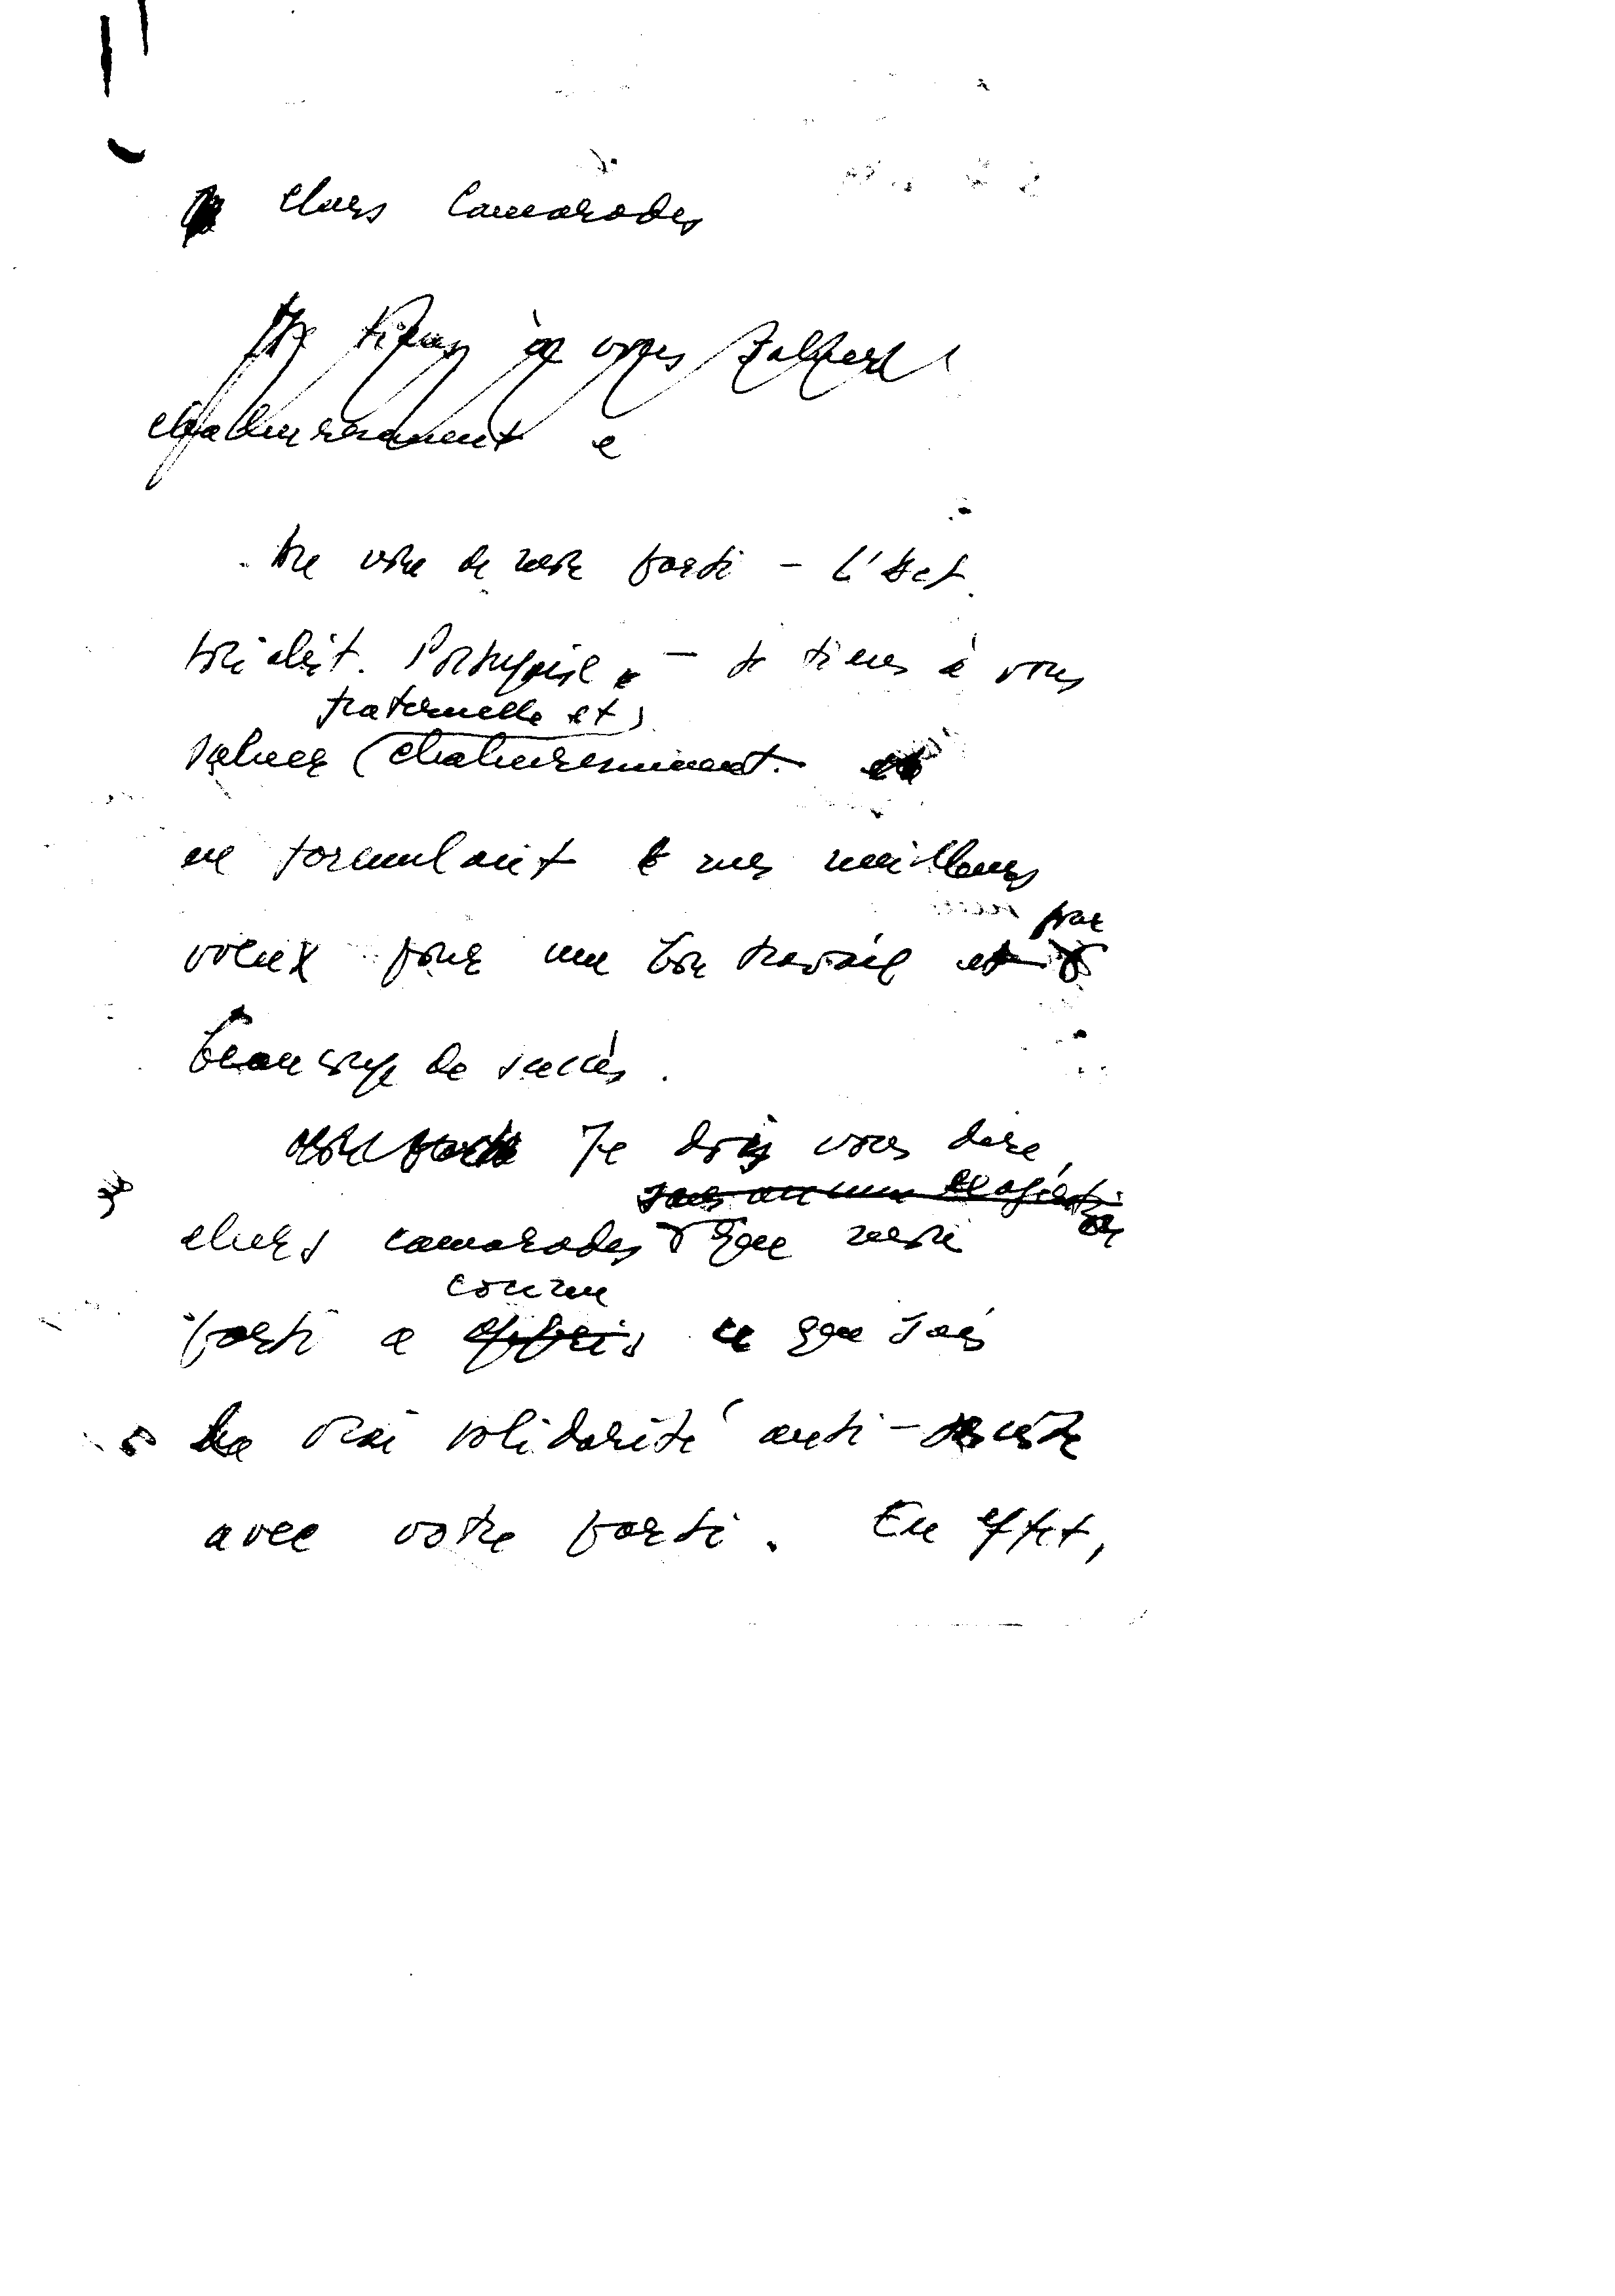 chers Camarades
Je tiens à vous saluer
chaleureusement e
Au nom de notre parti - l'Act.
socialist. Portugaise - je tiens à vous
fraternelle et
saluer chaleureusement.
en formulant mes meilleurs
pour
voeux pour un bon travail et
beaucoup de succès.
Je dois vous dire,
sans aucune
chers camarades que notre
parti a connu ce que sait
la vrai solidarité anti-
avec votre parti. En effet,